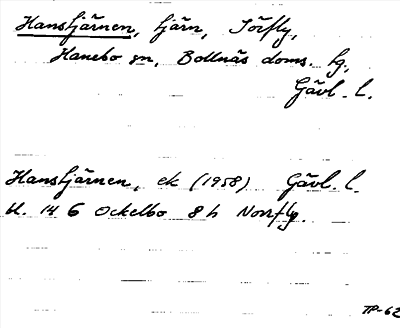 Hanstjärnen, tjärn, Törfly,
Hanebo sn, Bollnäs doms. fg.,
Gävl. l.
Hanstjärnen, ek (1958) Gävl. l.
bl. 14 6 Ockelbo 8 h Norrfly.
TP-62